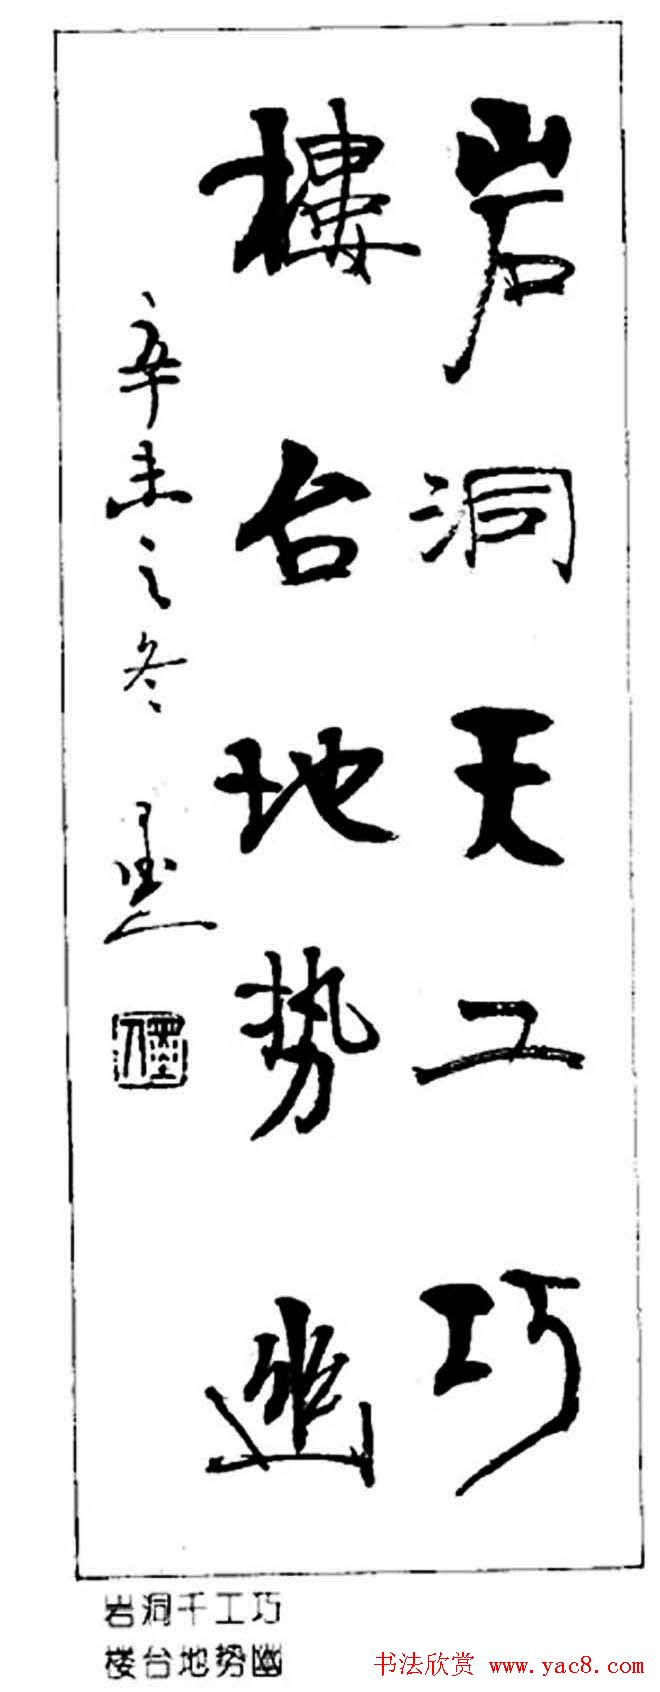 岩洞天工巧
樓台地势幽
辛未之冬 墨
岩洞千工巧
楼台地势幽
书法欣赏 www.yac8.com